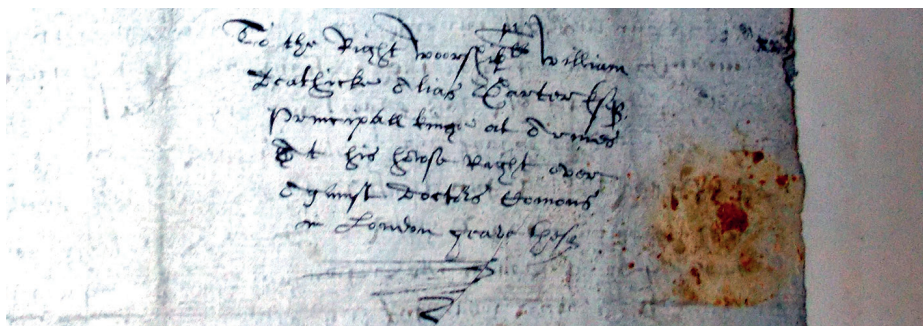 To the Right woorshipll William
Deathicke Alias Garter Esqr
Principall kinge at Armes
At his howse Right over
Against Doctrs Comons
in London geave these